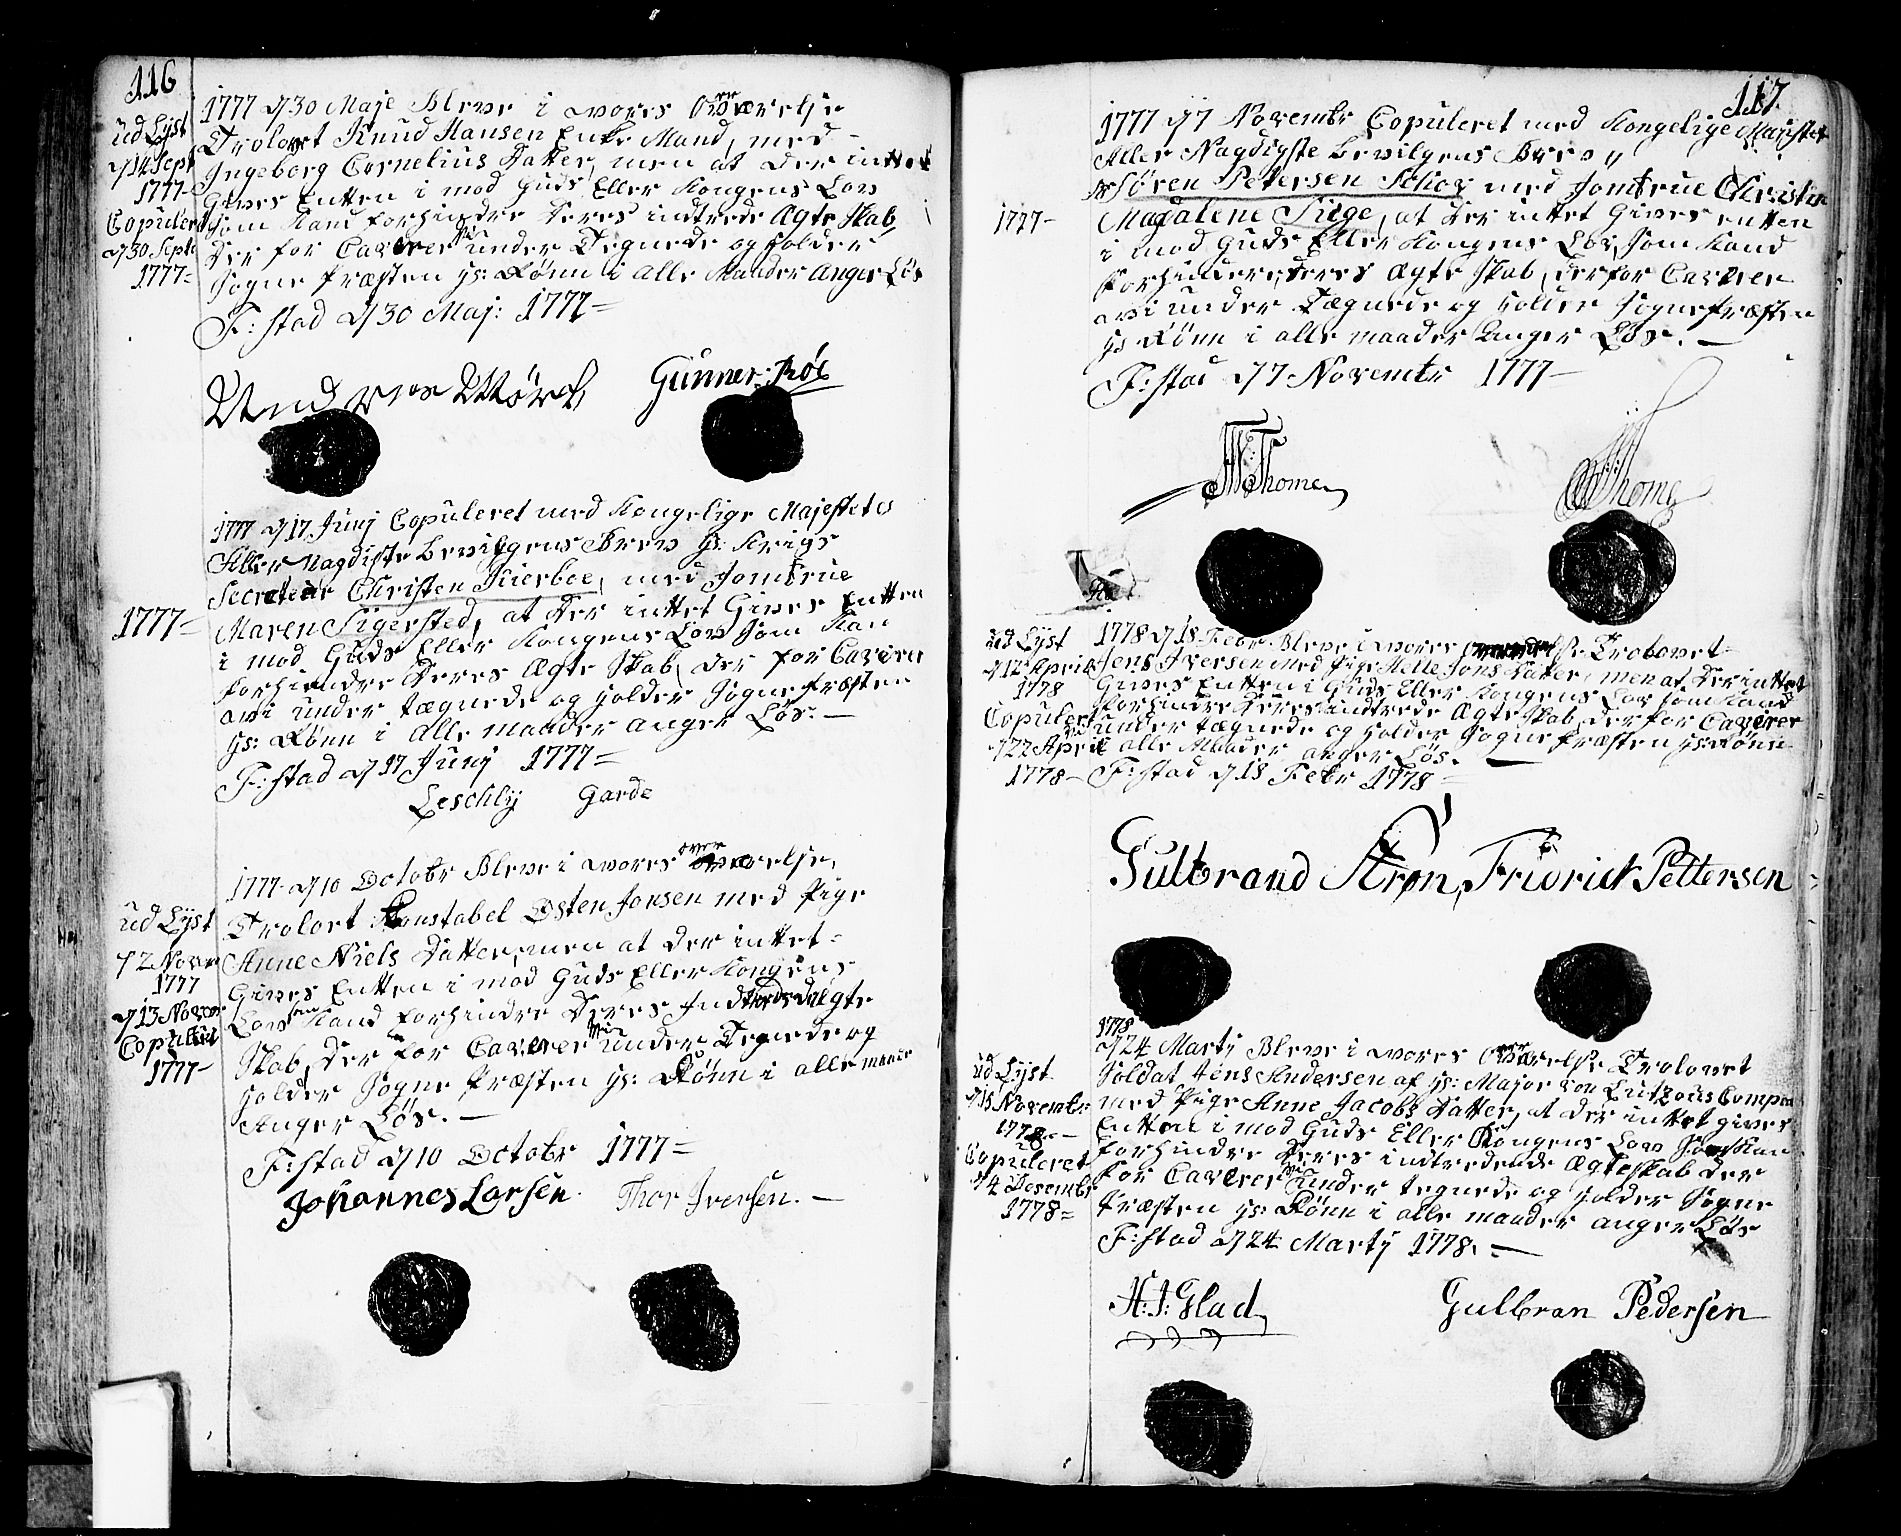 116
Ud Lyst
d 14 Sept
1777-
Copuleret
d 30 Septe
1777-
1777 d 30 Maje Bleve i wores Overværelse
Trolovet Knud Hansen Enke Mand, med
Ingeborg Cornelius Datter, men at Der inttet
Gives Entten i mod Guds Eller Kongens Lov
som Kand forhindre Deres indtrede Ægte Skab,
Der for Caverer vi under Tegnede og holder
Sogne Præsten Hs: Rønn i Alle Maader Anger Løs
F:stad d 30 Maj: 1777-
Andres Mörch Gunner: Röe
1777-
1777 d 17 Junj Copuleret med Kongelige Majestets
Aller Nagdiste Bevilgens Brev Hs: Krigs
Secreteer Christen Kierboe, med Jomfrue
Maren Sigersted, at Der inttet Gives Entten
i mod Guds Eller Kongens Lov som Kan
forhiendre Deres Ægte Skab, der for Caverer
wi under tægnede og holder Sogne Præsten
Hs: Rønn i Alle maader anger Løs.-
F:stad d 17 Junj 1777-
Leschly Garde
ud Lyst
d 2 Novr
1777
d 13 Novr
Copulert
1777-
1777- d 10 Octobr Bleve i wores overværelse,
Trolovet Konstabel Osten Jonsen med Pige
Anne Niels Datter, men at der inttet-
Gives Entten i mod Guds Eller Kongens
Lov som Kand forhindre Deres Indtrede Ægte
Skab, Der for Caverer vi under Tegnede og
holder Sogne Præsten Hs: Rønn i alle maade
Anger Løs.-
F:stad d 10 Octobr 1777-
Johannes Larsen. Thor Iversen.-
117
1777-
1777 d 7 Novembr Copuleret med Kongelige Mayestet
Aller Nagdigste Bevilgens Brev
Hr Søren Petersen Schov med Jomfrue Christin
Magdalene Siige, at Der inttet Gives entten
i mod Guds Eller Kongens Lov, som Kand
forhindre, deres Ægte Skab, derfor Caverer
wi under Tægnede og holder Sognepræsten
Hs Rønn i alle maader Anger Løs.-
F:stad d 7 Novembr 1777-
Thome Thome
ud Lyst
d 12 April
1778
Copulert
d 22 April
1778-
1778 d 18 Febr Bleve i wores Trolovet-
Jens Iversen med Pige Helle Jons Datter, men at Der inttet
Gives Entten i Guds Eller Kongens Lov som Kand
forhindre Deres indtrede Ægte Skab, der for Caverer
vi under tægnede og holder Sogne Præsten Hs: Rønn
i alle Maader anger Løs.-
F:stad d 18 Febr 1778-
Gulbrand Strøm, Fridrick Pettersen
ud Lyst
d 15 Novembr
1778-
Copuleret
d 4 Desembr
1778-
1778
d 24 Martj Bleve i wores Overværelse Trolovet
Soldat Jens Andersen af Hs: Major von Lutzous Compa
med Pige Anne Jacobs Datter, at der inttet gives
Entten i mod Guds Eller Kongens Lov som Kan
forhindre Deres indtredende Ægteskab Der
for Caverer vi Under tegnede og holder Sogne
Præsten Hs: Rønn i alle maader anger Løs
F:stad d 24 Martj 1778.-
H: I: Glad Gulbran Pedersen